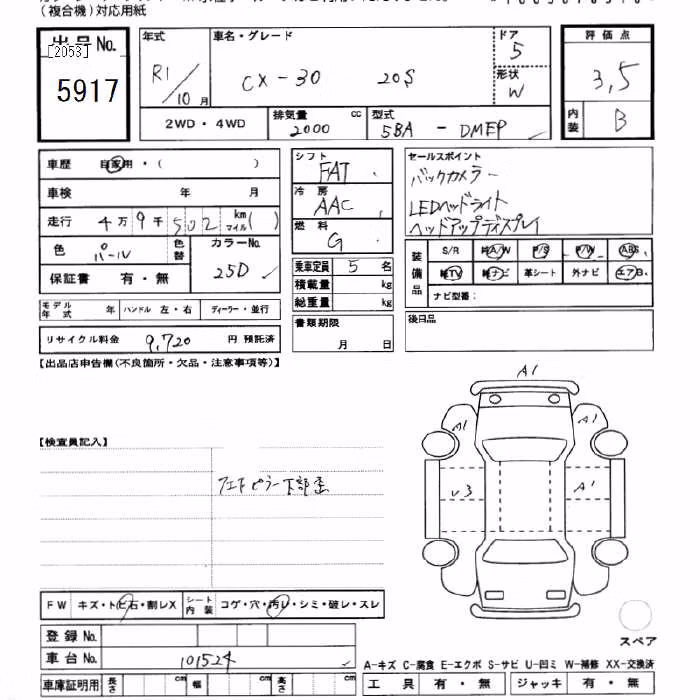 (複合機)対応用紙
出品No.
[2053]
5917
年式
R1/10月
車名・グレード
CX-30 20S
ドア
5
形状
W
評価点
3,5
内装
B
2WD・4WD
排気量
2000 cc
型式
5BA - DMEP
車歴 自家用・( )
車検 年 月
走行 4万9千502 km マイル( )
色 パール 色替
カラーNo.
25D
保証書 有・無
シフト
FAT
冷房
AAC
燃料
G
乗車定員 5 名
積載量 kg
総重量 kg
セールスポイント
バックカメラー
LEDヘッドライト
ヘッドアップディスプレイ
装備品
S/R 純A/W P/S P/W ABS
純TV 純ナビ 革シート 外ナビ エアB.
ナビ型番:
モデル年式 年 ハンドル 左・右 ディーラー・並行
リサイクル料金 9,720 円 預託済
書類期限
月 日
後日品
【出品店申告欄(不良箇所・欠品・注意事項等)】
【検査員記入】
A1
A1
A1
U3
A1
スペア
FW キズ・トビ石・割レX
シート内装 コゲ・穴・汚レ・シミ・破レ・スレ
登録No.
車台No. 101524
A-キズ C-腐食 E-エクボ S-サビ U-凹ミ W-補修 XX-交換済
車庫証明用 長さ cm 幅 cm 高さ cm
工具 有・無 ジャッキ 有・無